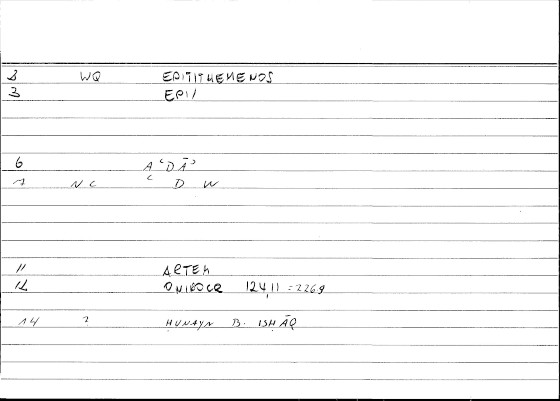 2 WQ EPITITHEMENOS
3 EPI/
6 AʿDĀʾ
7 NC ʿ D W
11 ARTEM
12 ONIROCR 124,11 = 226,9
14 2 ḤUNAYN B. ISḤĀQ